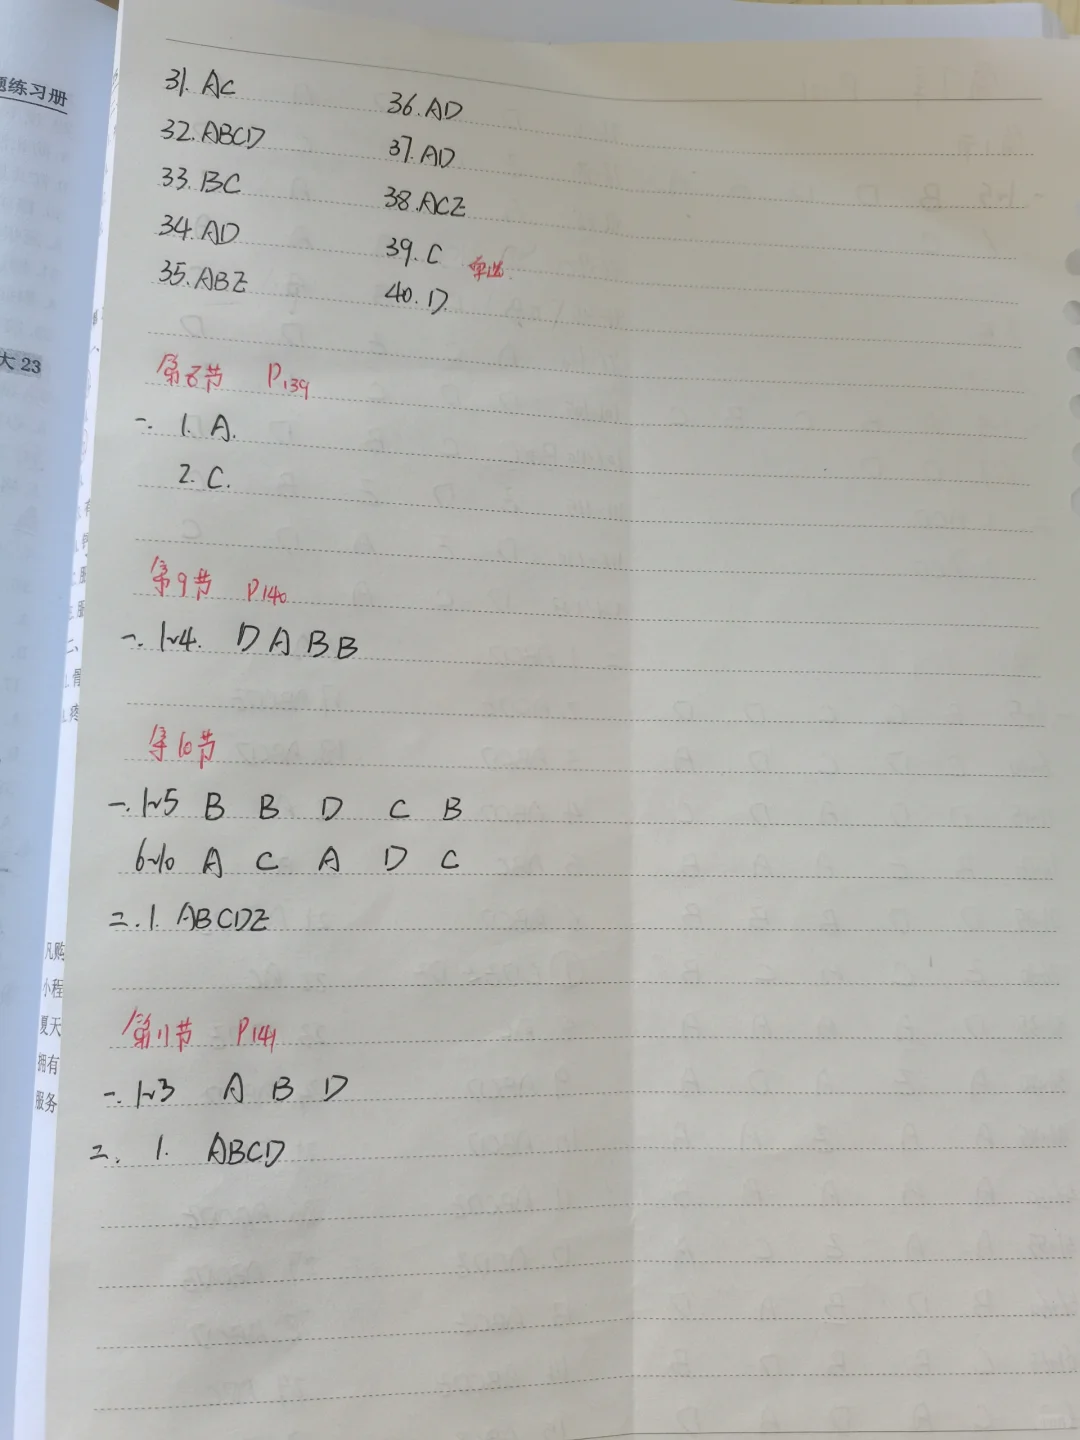 题练习册
大 23
31. AC
32. ABCD
33. BC
34. AD
35. ABE
36. AD
37. AD
38. ACE
39. C 单选
40. D
第8节 P139
一. 1. A.
2. C.
第9节 P140
一. 1~4. D A B B
第10节
一. 1~5 B B D C B
6~10 A C A D C
二. 1. ABCDE
第11节 P141
一. 1~3 A B D
二. 1. ABCD
凡购
小程
夏天
拥有
服务